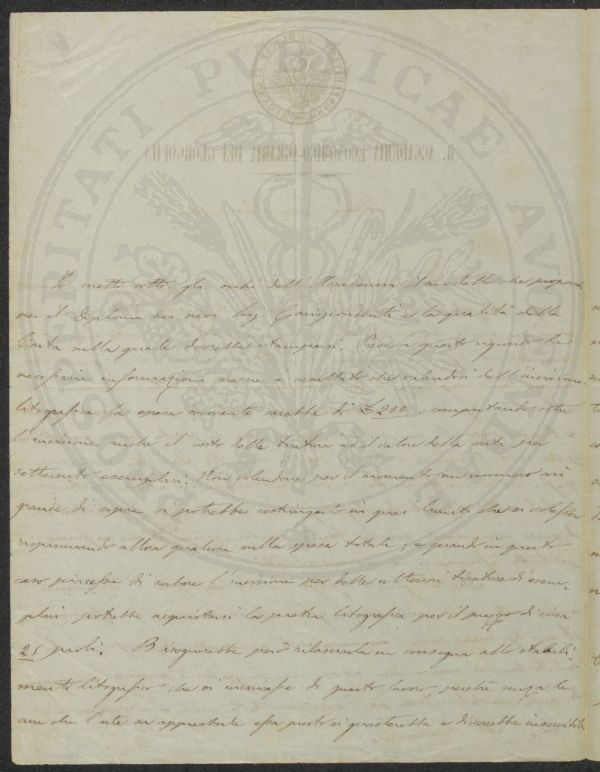 PROSPERITATI PUBLICAE AUGENDAE
R. ACCADEMIA ECONOMICO-AGRARIA DEI GEORGOFILI
metto sotto gli occhi dell'Accademia il modello che propon
per il Diploma dei nuovi Corrispondenti e la qualità della
Carta sulla quale dovrebbe stamparsi. Prese a questo riguardo le
necessarie informazioni è resultato che valendosi dell'incisione
litografica la spesa sarebbe di £ 200, computando oltre
l'incisione anche il costo della tiratura ed il valore della carta per
settecento esemplari. Non volendone per il momento un numero così
grande di copie si potrebbe restringerlo in quei limiti che si volesse
risparmiando allora qualcosa sulla spesa totale, e quando in questo
caso piacesse di serbare l'incisione per delle ulteriori tirature di esem-
plari, potrebbe acquistarsi la pietra litografica per il prezzo di circa
25 paoli. Bisognerebbe però rilasciarla in consegna allo Stabili-
mento litografico che si incaricasse di questo lavoro, perchè senza le
cure che l'arte sa apprestarle essa presto si guasterebbe e diverrebbe inservibile